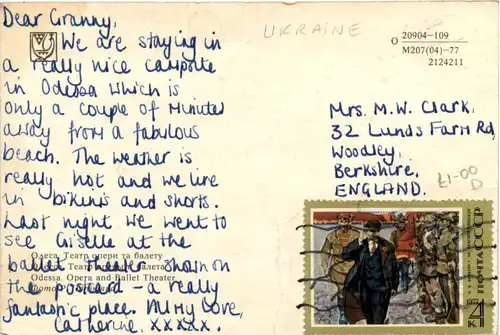 Dear Granny,
We are staying in
a really nice campsite
in Odessa which is
only a couple of minutes
away from a fabulous
beach. The weather is
really hot and we live
in bikinis and shorts.
Last night we went to
see Giselle at the
ballet theater shown on
the postcard – a really
fantastic place. All my Love,
Catherine. XXXXX.
Одеса. Театр опери та балету
Odessa. Opera and Ballet Theater
UKRAINE
О 20904–109
М207(04)–77
2124211
Mrs. M.W. Clark,
32 Lunds Farm Rd,
Woodley,
Berkshire,
ENGLAND.
£1-00
D
ПОЧТА СССР
1977
4
к